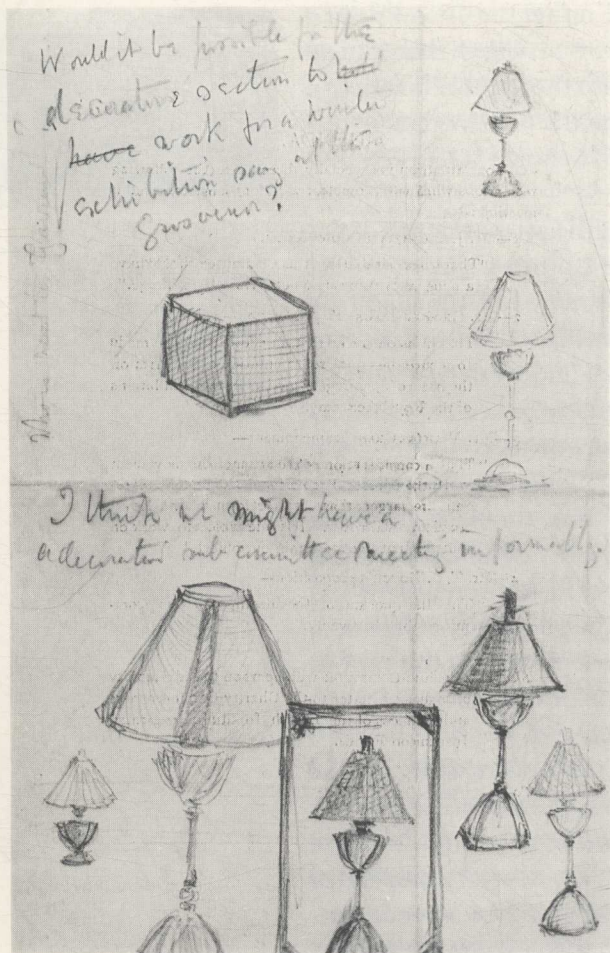 Would it be possible for the
decorative section to
have work for a winter
exhibition say at the
Grosvenor?
I think we might have a
a decoration sub committee meeting informally.